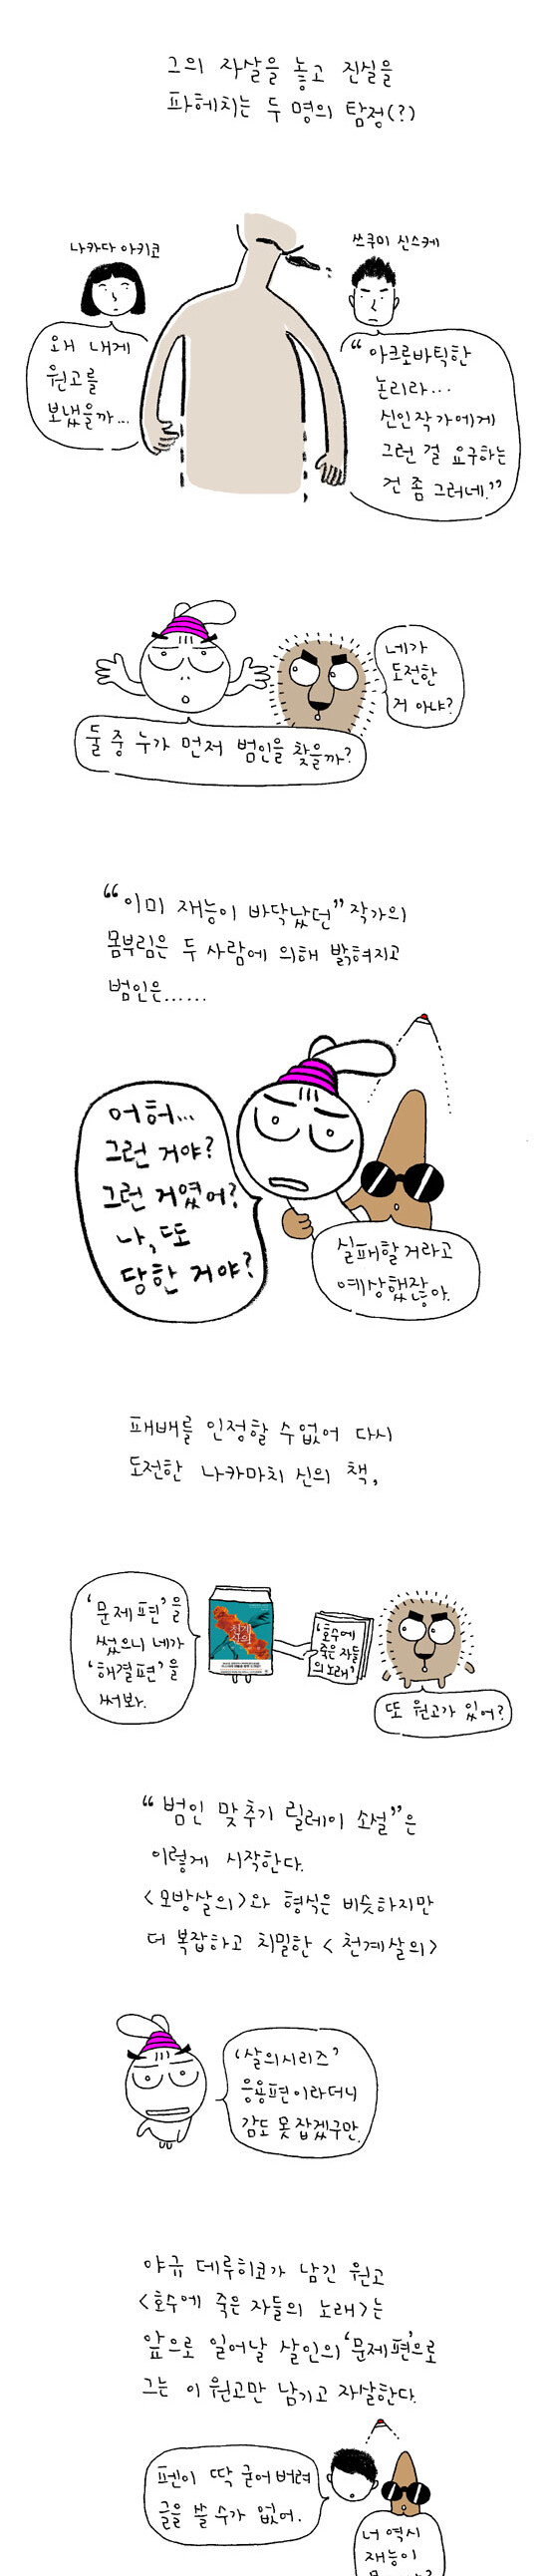 그의 자살을 놓고 진실을
파헤치는 두 명의 탐정(?)
나카다 아키코
쓰쿠미 신스케
왜 내게
원고를
보냈을까...
“아크로바틱한
논리라...
신인작가에게
그런 걸 요구하는
건 좀 그러네.”
네가
도전한
거 아냐?
둘 중 누가 먼저 범인을 찾을까?
“이미 재능이 바닥났던” 작가의
몸부림은 두 사람에 의해 밝혀지고
범인은......
어허...
그런 거야?
그런 거였어?
나, 또
당한 거야?
실패할 거라고
예상했잖아.
패배를 인정할 수 없어 다시
도전한 나카마치 신의 책,
‘문제편’을
썼으니 네가
‘해결편’을
써봐.
천계
살의
‘호수에
죽은 자들
의 노래’
또 원고가 있어?
“범인 맞추기 릴레이 소설”은
이렇게 시작한다.
<모방살의>와 형식은 비슷하지만
더 복잡하고 치밀한 <천계살의>
‘살의시리즈’
응용편이라더니
감도 못 잡겠구만.
야규 데루히코가 남긴 원고
<호수에 죽은 자들의 노래>는
앞으로 일어날 살인의 ‘문제편’으로
그는 이 원고만 남기고 자살한다.
펜이 딱 굳어버려
글을 쓸 수가 없어.
너 역시
재능이